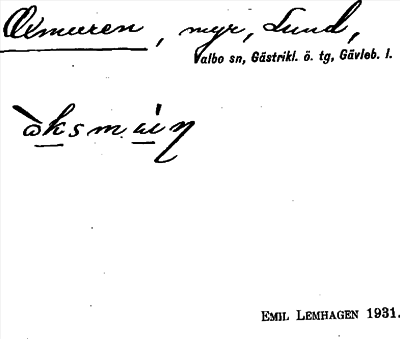 Oxmuren, myr, Lund,
Valbo sn, Gästrikl. ö. tg, Gävleb. l.
EMIL LEMHAGEN 1931.